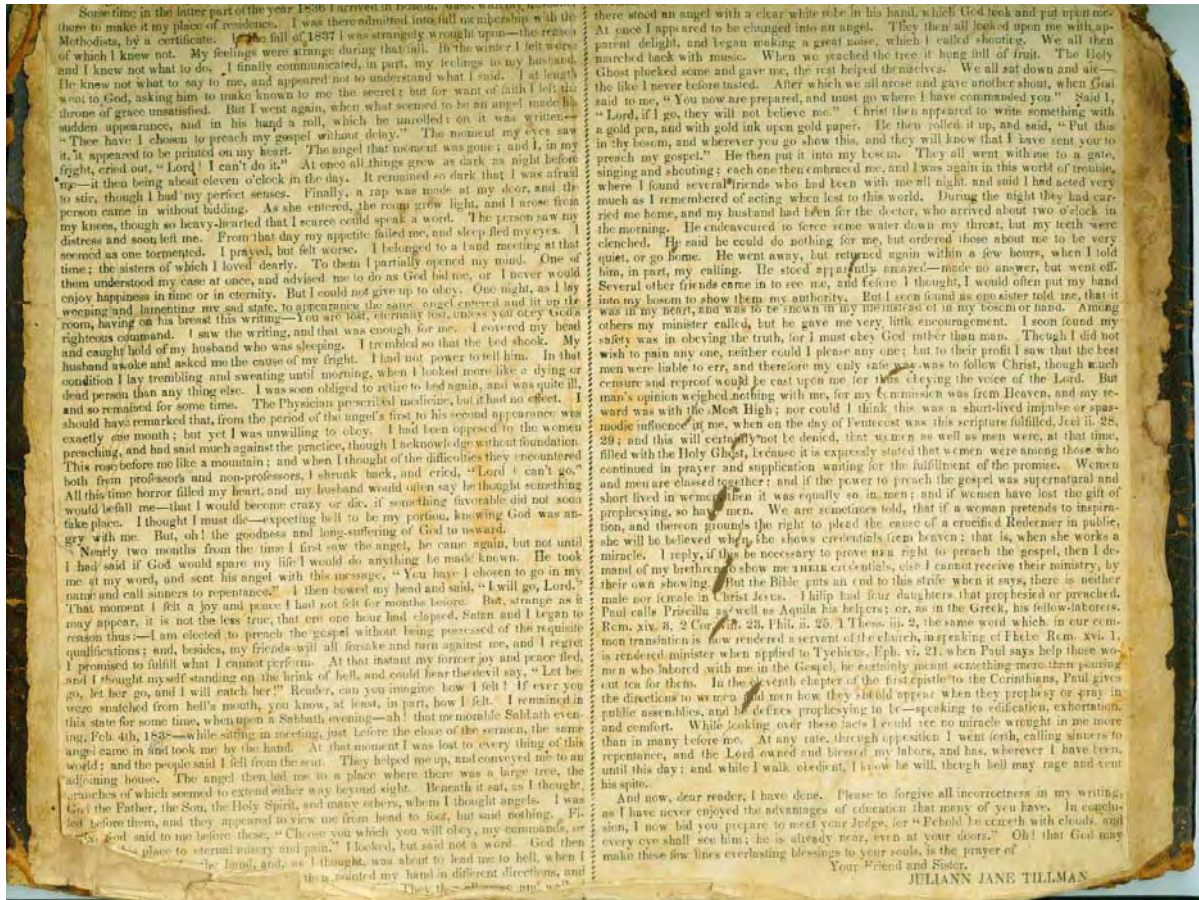 Some time in the latter part of the year 1836 I arrived in Boston, Mass.
there to make it my place of residence. I was there admitted into full membership with the
Methodists, by a certificate. In the fall of 1837 I was strangely wrought upon—the reason
of which I knew not. My feelings were strange during that fall. In the winter I felt worse
and I knew not what to do. I finally communicated, in part, my feelings to my husband.
He knew not what to say to me, and appeared not to understand what I said. I at length
went to God, asking him to make known to me the secret; but for want of faith I left the
throne of grace unsatisfied. But I went again, when what seemed to be an angel made his
sudden appearance, and in his hand a roll, which he unrolled: on it was written—
"Thee have I chosen to preach my gospel without delay." The moment my eyes saw
it, it appeared to be printed on my heart. The angel that moment was gone; and I, in my
fright, cried out, "Lord! I can't do it." At once all things grew as dark as night before
me—it then being about eleven o'clock in the day. It remained so dark that I was afraid
to stir, though I had my perfect senses. Finally, a rap was made at my door, and the
person came in without bidding. As she entered, the room grew light, and I arose from
my knees, though so heavy-hearted that I scarce could speak a word. The person saw my
distress and soon left me. From that day my appetite failed me, and sleep fled my eyes. I
seemed as one tormented. I prayed, but felt worse. I belonged to a band meeting at that
time; the sisters of which I loved dearly. To them I partially opened my mind. One of
them understood my case at once, and advised me to do as God bid me, or I never would
enjoy happiness in time or in eternity. But I could not give up to obey. One night, as I lay
weeping and lamenting my sad state, to appearance the same angel entered and lit up the
room, having on his breast this writing—You are lost, eternally lost, unless you obey God's
righteous command. I saw the writing, and that was enough for me. I covered my head
and caught hold of my husband who was sleeping. I trembled so that the bed shook. My
husband awoke and asked me the cause of my fright. I had not power to tell him. In that
condition I lay trembling and sweating until morning, when I looked more like a dying or
dead person than any thing else. I was soon obliged to retire to bed again, and was quite ill,
and so remained for some time. The Physician prescribed medicine, but it had no effect. I
should have remarked that, from the period of the angel's first to his second appearance was
exactly one month; but yet I was unwilling to obey. I had been opposed to the women
preaching, and had said much against the practice, though I acknowledge without foundation.
This rose before me like a mountain; and when I thought of the difficulties they encountered
both from professors and non-professors, I shrunk back, and cried, "Lord I can't go."
All this time horror filled my heart, and my husband would often say he thought something
would befall me—that I would become crazy or die, if something favorable did not soon
take place. I thought I must die—expecting hell to be my portion, knowing God was an-
gry with me. But, oh! the goodness and long-suffering of God to usward.
Nearly two months from the time I first saw the angel, he came again, but not until
I had said if God would spare my life I would do anything he made known. He took
me at my word, and sent his angel with this message, "You have I chosen to go in my
name and call sinners to repentance." I then bowed my head and said, "I will go, Lord."
That moment I felt a joy and peace I had not felt for months before. But, strange as it
may appear, it is not the less true, that ere one hour had elapsed, Satan and I began to
reason thus:—I am elected to preach the gospel without being possessed of the requisite
qualifications; and, besides, my friends will all forsake and turn against me, and I regret
I promised to fulfill what I cannot perform. At that instant my former joy and peace fled,
and I thought myself standing on the brink of hell, and could hear the devil say, "Let her
go, let her go, and I will catch her!" Reader, can you imagine how I felt? If ever you
were snatched from hell's mouth, you know, at least, in part, how I felt. I remained in
this state for some time, when upon a Sabbath evening—ah! that memorable Sabbath even-
ing, Feb. 4th, 1838—while sitting in meeting, just before the close of the sermon, the same
angel came in and took me by the hand. At that moment I was lost to every thing of this
world; and the people said I fell from the seat. They helped me up, and conveyed me to an
adjoining house. The angel then led me to a place where there was a large tree, the
branches of which seemed to extend either way beyond sight. Beneath it sat, as I thought,
God the Father, the Son, the Holy Spirit, and many others, whom I thought angels. I was
led before them, and they appeared to view me from head to foot, but said nothing. Fi-
God said to me before these, "Choose you which you will obey, my commands, or
this place to eternal misery and pain." I looked, but said not a word. God then
the hand, and, as I thought, was about to lead me to hell, when I
then pointed my hand in different directions, and
They then all arose and
there stood an angel with a clear white robe in his hand, which God took and put upon me.
At once I appeared to be changed into an angel. They then all looked upon me with ap-
parent delight, and began making a great noise, which I called shouting. We all then
marched back with music. When we reached the tree it hung full of fruit. The Holy
Ghost plucked some and gave me, the rest helped themselves. We all sat down and ate—
the like I never before tasted. After which we all arose and gave another shout, when God
said to me, "You now are prepared, and must go where I have commanded you." Said I,
"Lord, if I go, they will not believe me." Christ then appeared to write something with
a gold pen, and with gold ink upon gold paper. He then rolled it up, and said, "Put this
in thy bosom, and wherever you go show this, and they will know that I have sent you to
preach my gospel." He then put it into my bosom. They all went with me to a gate,
singing and shouting; each one then embraced me, and I was again in this world of trouble,
where I found several friends who had been with me all night, and said I had acted very
much as I remembered of acting when lost to this world. During the night they had car-
ried me home, and my husband had been for the doctor, who arrived about two o'clock in
the morning. He endeavoured to force some water down my throat, but my teeth were
clenched. He said he could do nothing for me, but ordered those about me to be very
quiet, or go home. He went away, but returned again within a few hours, when I told
him, in part, my calling. He stood apparently amazed—made no answer, but went off.
Several other friends came in to see me, and before I thought, I would often put my hand
into my bosom to show them my authority. But I soon found as one sister told me, that it
was in my heart, and was to be shown in my life instead of in my bosom or hand. Among
others my minister called, but he gave me very little encouragement. I soon found my
safety was in obeying the truth, for I must obey God rather than man. Though I did not
wish to pain any one, neither could I please any one; but to their profit I saw that the best
men were liable to err, and therefore my only safe was to follow Christ, though much
censure and reproof would be cast upon me for thus obeying the voice of the Lord. But
man's opinion weighed nothing with me, for my commission was from Heaven, and my re-
ward was with the Most High; nor could I think this was a short-lived impulse or spas-
modic influence in me, when on the day of Pentecost was this scripture fulfilled, Joel ii. 28,
29; and this will certainly not be denied, that women as well as men were, at that time,
filled with the Holy Ghost, because it is expressly stated that women were among those who
continued in prayer and supplication waiting for the fulfillment of the promise. Women
and men are classed together; and if the power to preach the gospel was supernatural and
short lived in women then it was equally so in men; and if women have lost the gift of
prophesying, so have men. We are sometimes told, that if a woman pretends to inspira-
tion, and thereon grounds the right to plead the cause of a crucified Redeemer in public,
she will be believed when she shows credentials from heaven; that is, when she works a
miracle. I reply, if this be necessary to prove us a right to preach the gospel, then I de-
mand of my brethren to show me THEIR credentials, else I cannot receive their ministry, by
their own showing. But the Bible puts an end to this strife when it says, there is neither
male nor female in Christ Jesus. Philip had four daughters that prophesied or preached.
Paul calls Priscilla as well as Aquila his helpers; or, as in the Greek, his fellow-laborers.
Rom. xiv. 3, 2 Cor. viii. 23, Phil. ii. 25, 1 Thess. iii. 2, the same word which, in our com-
mon translation is now rendered a servant of the church, in speaking of Phebe. Rom. xvi. 1,
is rendered minister when applied to Tychicus, Eph. vi. 21. when Paul says help those wo-
men who labored with me in the Gospel, he certainly meant something more than pouring
out tea for them. In the eleventh chapter of the first epistle to the Corinthians, Paul gives
the directions to women and men how they should appear when they prophesy or pray in
public assemblies, and he defines prophesying to be—speaking to edification, exhortation,
and comfort. While looking over these facts I could see no miracle wrought in me more
than in many before me. At any rate, through opposition I went forth, calling sinners to
repentance, and the Lord owned and blessed my labors, and has, wherever I have been,
until this day; and while I walk obedient, I know he will, though hell may rage and vent
his spite.
And now, dear reader, I have done. Please to forgive all incorrectness in my writing,
as I have never enjoyed the advantages of education that many of you have. In conclu-
sion, I now bid you prepare to meet your Judge, for "Behold he cometh with clouds, and
every eye shall see him; he is already near, even at your doors." Oh! that God may
make these few lines everlasting blessings to your souls, is the prayer of
Your Friend and Sister,
JULIANN JANE TILLMAN